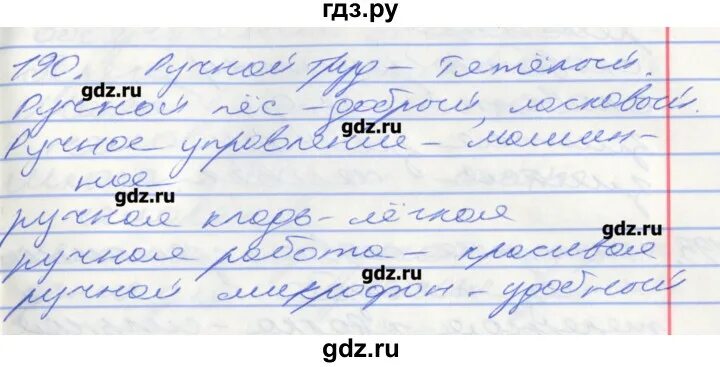 гдз.ру
190. Ручной труд – тяжёлый.
gdz.ru
Ручной пёс – добрый, ласковый.
gdz.ru
Ручное управление – машин-
ное
gdz.ru
ручная кладь – лёгкая
ручная работа – красивая
gdz.ru
ручной микрофон – удобный
gdz.ru